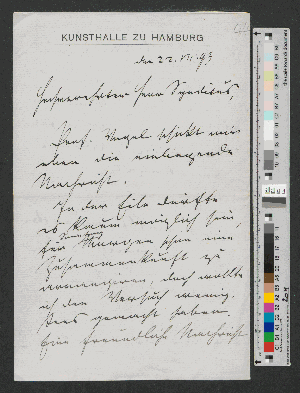 KUNSTHALLE ZU HAMBURG
den 22. VII. 93
Hochverehrter Herr Syndicus,
Prof. Vogel schickt mir
eben die einliegende
Nachricht.
In der Eile dürfte
es kaum möglich sein
für Morgen schon eine
Zusammenkunft zu
arrangieren, doch wollte
ich den Versuch wenig-
stens gemacht haben.
Eine freundliche Nachricht